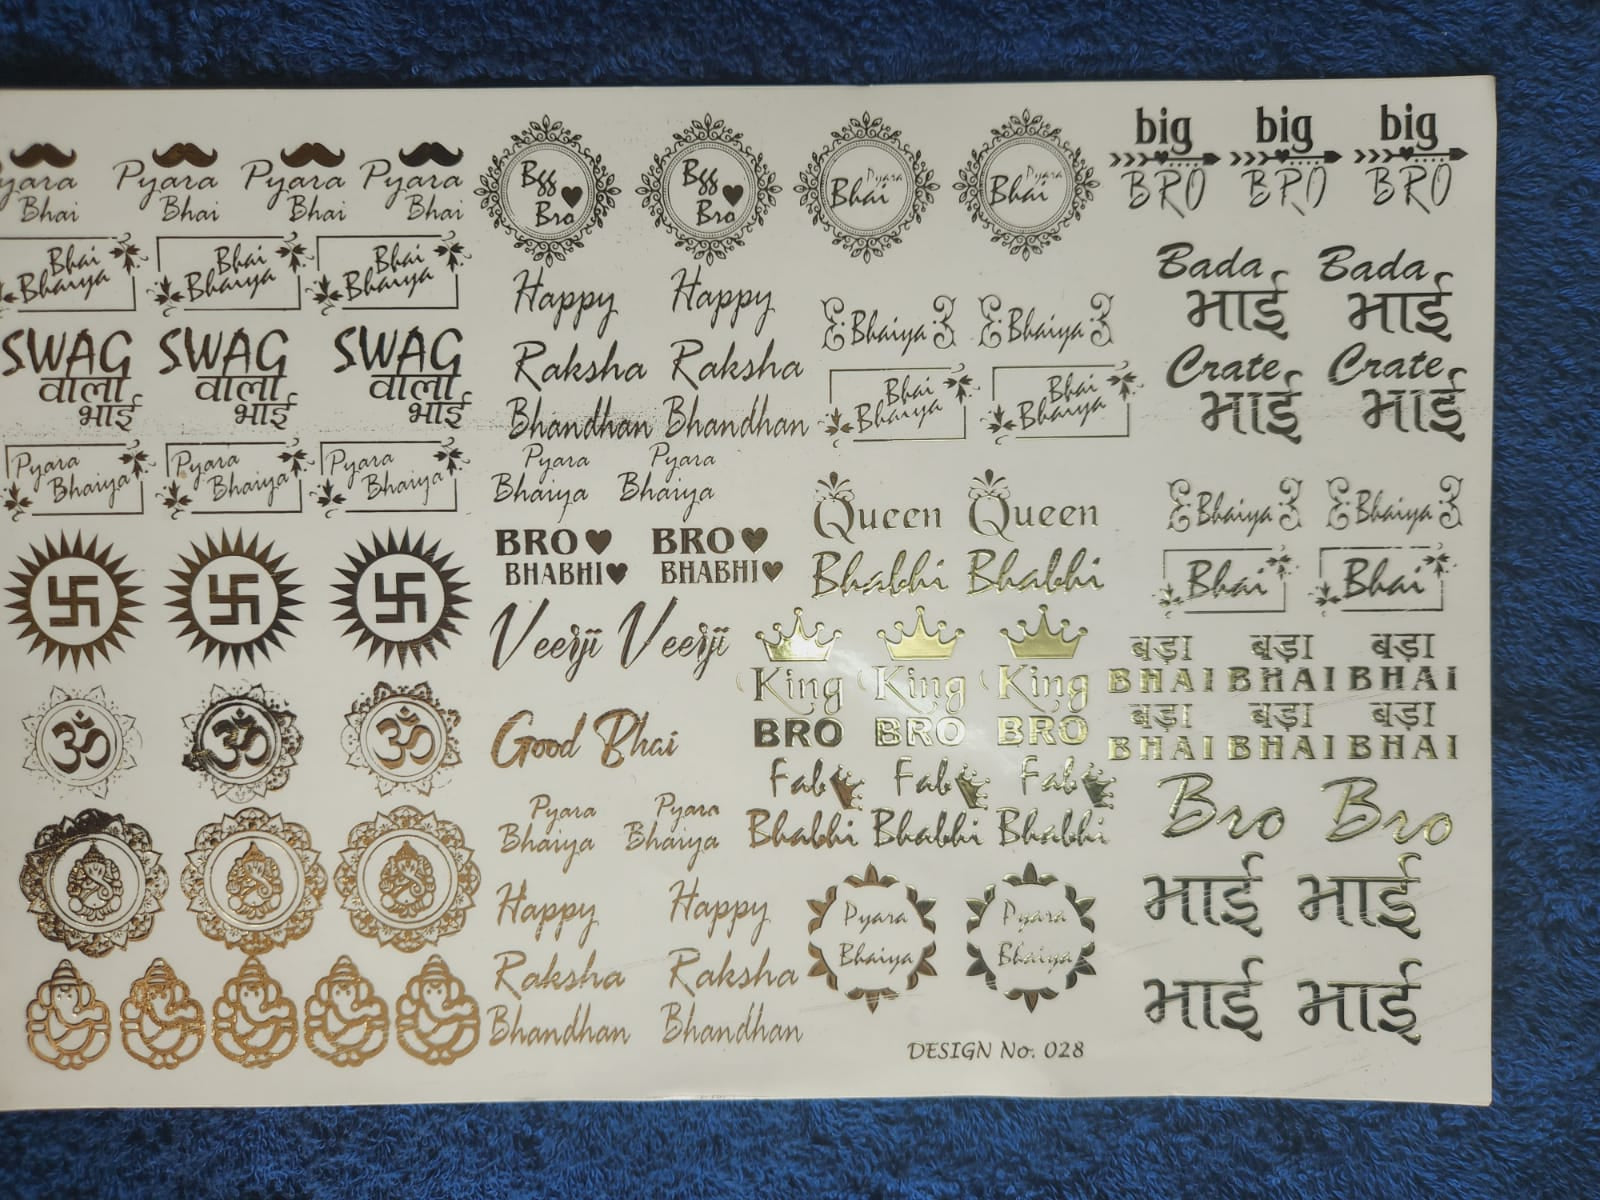 Pyara Bhai
Pyara Bhai
Pyara Bhai
Pyara Bhai
Bhai Bhaiya
Bhai Bhaiya
Bhai Bhaiya
SWAG वाला भाई
SWAG वाला भाई
SWAG वाला भाई
Pyara Bhaiya
Pyara Bhaiya
Pyara Bhaiya
ॐ
ॐ
ॐ
Bgg Bro
Bgg Bro
Pyara Bhai
Pyara Bhai
Happy Happy
Raksha Raksha
Bhandhan Bhandhan
Pyara Pyara
Bhaiya Bhaiya
BRO BRO
BHABHI BHABHI
Veerji Veerji
Good Bhai
Pyara Pyara
Bhaiya Bhaiya
Happy Happy
Raksha Raksha
Bhandhan Bhandhan
Bhaiya Bhaiya
Bhai Bhaiya
Bhai Bhaiya
Queen Queen
Bhabhi Bhabhi
King King King
BRO BRO BRO
Fab Fab Fab
Bhabhi Bhabhi Bhabhi
Pyara Pyara
Bhaiya Bhaiya
DESIGN No. 028
big big big
BRO BRO BRO
Bada Bada
भाई भाई
Crate Crate
भाई भाई
Bhaiya Bhaiya
Bhai Bhai
बड़ा बड़ा बड़ा
BHAI BHAI BHAI
बड़ा बड़ा बड़ा
BHAI BHAI BHAI
Bro Bro
भाई भाई
भाई भाई